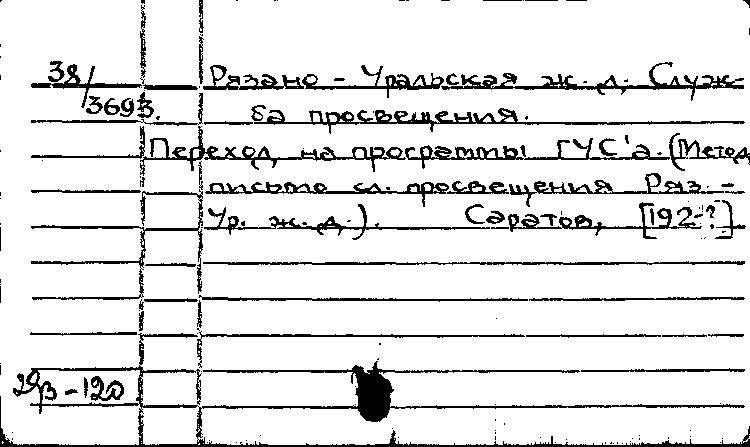 38/3693.
Рязано - Уральская ж. д. Служ-
ба просвещения.
Переход на программы ГУС'а. (Метод.
письмо сл. просвещения Ряз. -
Ур. ж. д.). Саратов, [192-?]
29/β - 120